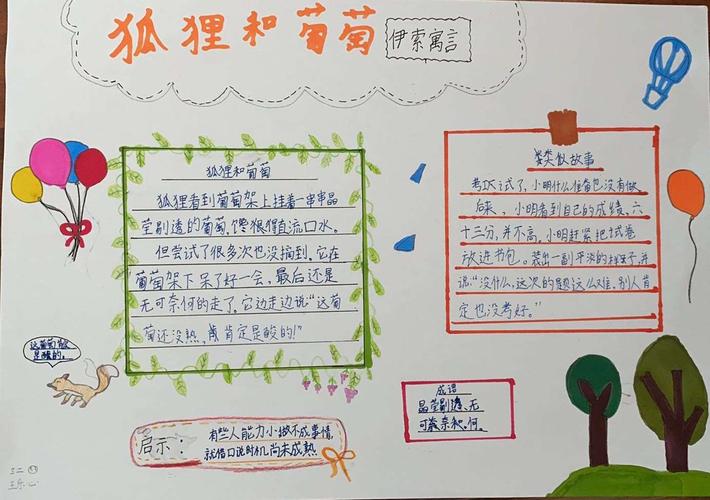 狐狸和葡萄
伊索寓言
狐狸和葡萄
狐狸看到葡萄架上挂着一串串晶
莹剔透的葡萄,馋狠狠直流口水。
但尝试了很多次也没摘到。它在
葡萄架下呆了好一会,最后还是
无可奈何的走了。它边走边说“这葡
萄还没熟,肯定是酸的!”
类似故事
考试了,小明什么准备也没有做
后来,小明看到自己的成绩,六
十三分,并不高。小明赶紧把试卷
放进书包。装出一副平淡的样子,并
说:“没什么,这次的题这么难,别人肯
定也没考好。”
这葡萄
是酸的。
启示:
有些人能力小,做不成事情,
就借口说时机尚未成熟
成语
晶莹剔透、无
可奈何。